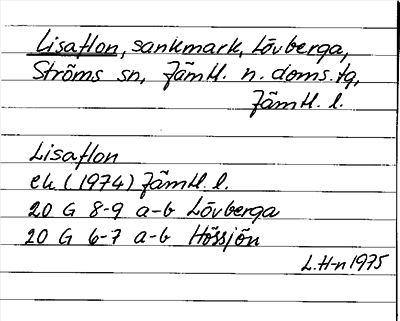 Lisaflon, sankmark, Lövberga,
Ströms sn, Jämtl. n. doms.tg,
Jämtl. l.
Lisaflon
ek (1974) Jämtl. l.
20 G 8-9 a-b Lövberga
20 G 6-7 a-b Hössjön
L. H-n 1975